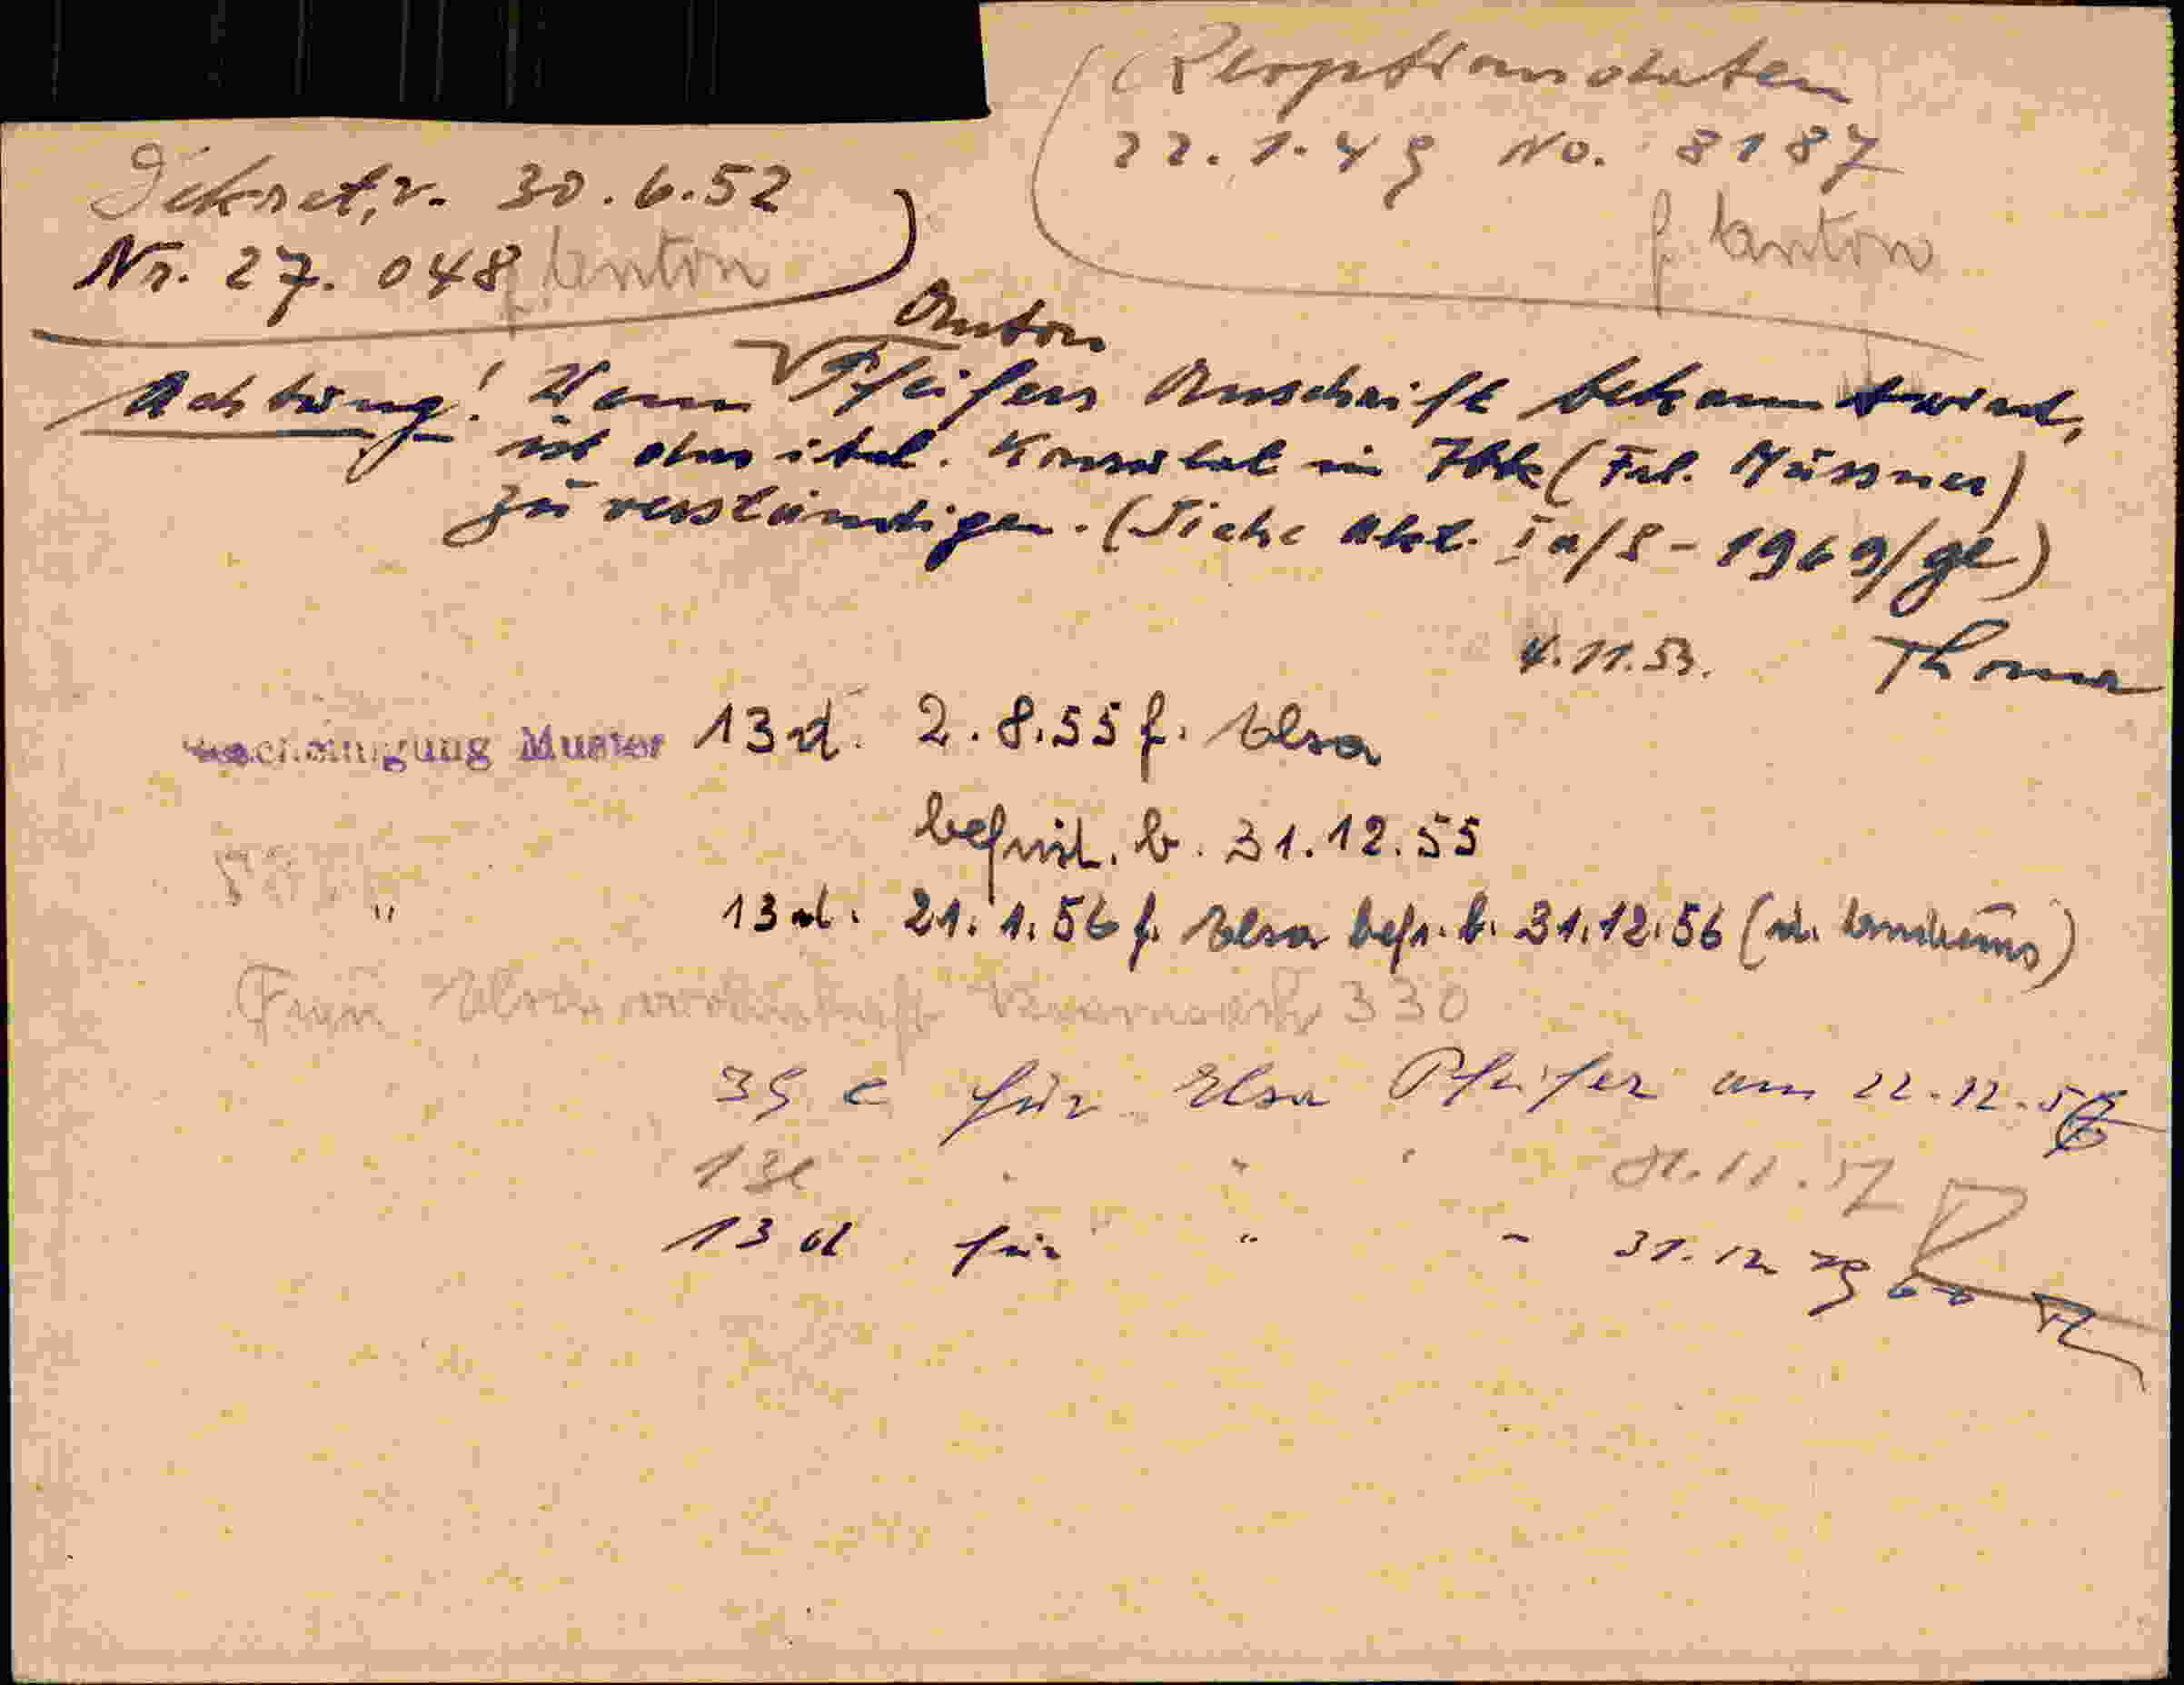 (Reoptionsdaten
22.1.49 No. 8187
f. Anton
Dekret, v. 30.6.52
Nr. 27.048 f. Anton
Anton
Achtung! Wenn Pfeifers Anschrift bekannt wird,
ist das ital. Konsulat in Ibk (Frl. Müssner)
zu verständigen. (Siehe Akt. Ia/S-1969/ge)
4.11.53. Thoma
Bescheinigung Muster 13 d. 2.8.55 f. Elsa
befrist. b. 31.12.55
" 13 d. 21.1.56 f. Elsa befr. b. 31.12.56
Frau Elsa wohnhaft 330
39 e für Elsa Pfeifer am 22.12.56
13 " " " 57
13 d für " " 31.12